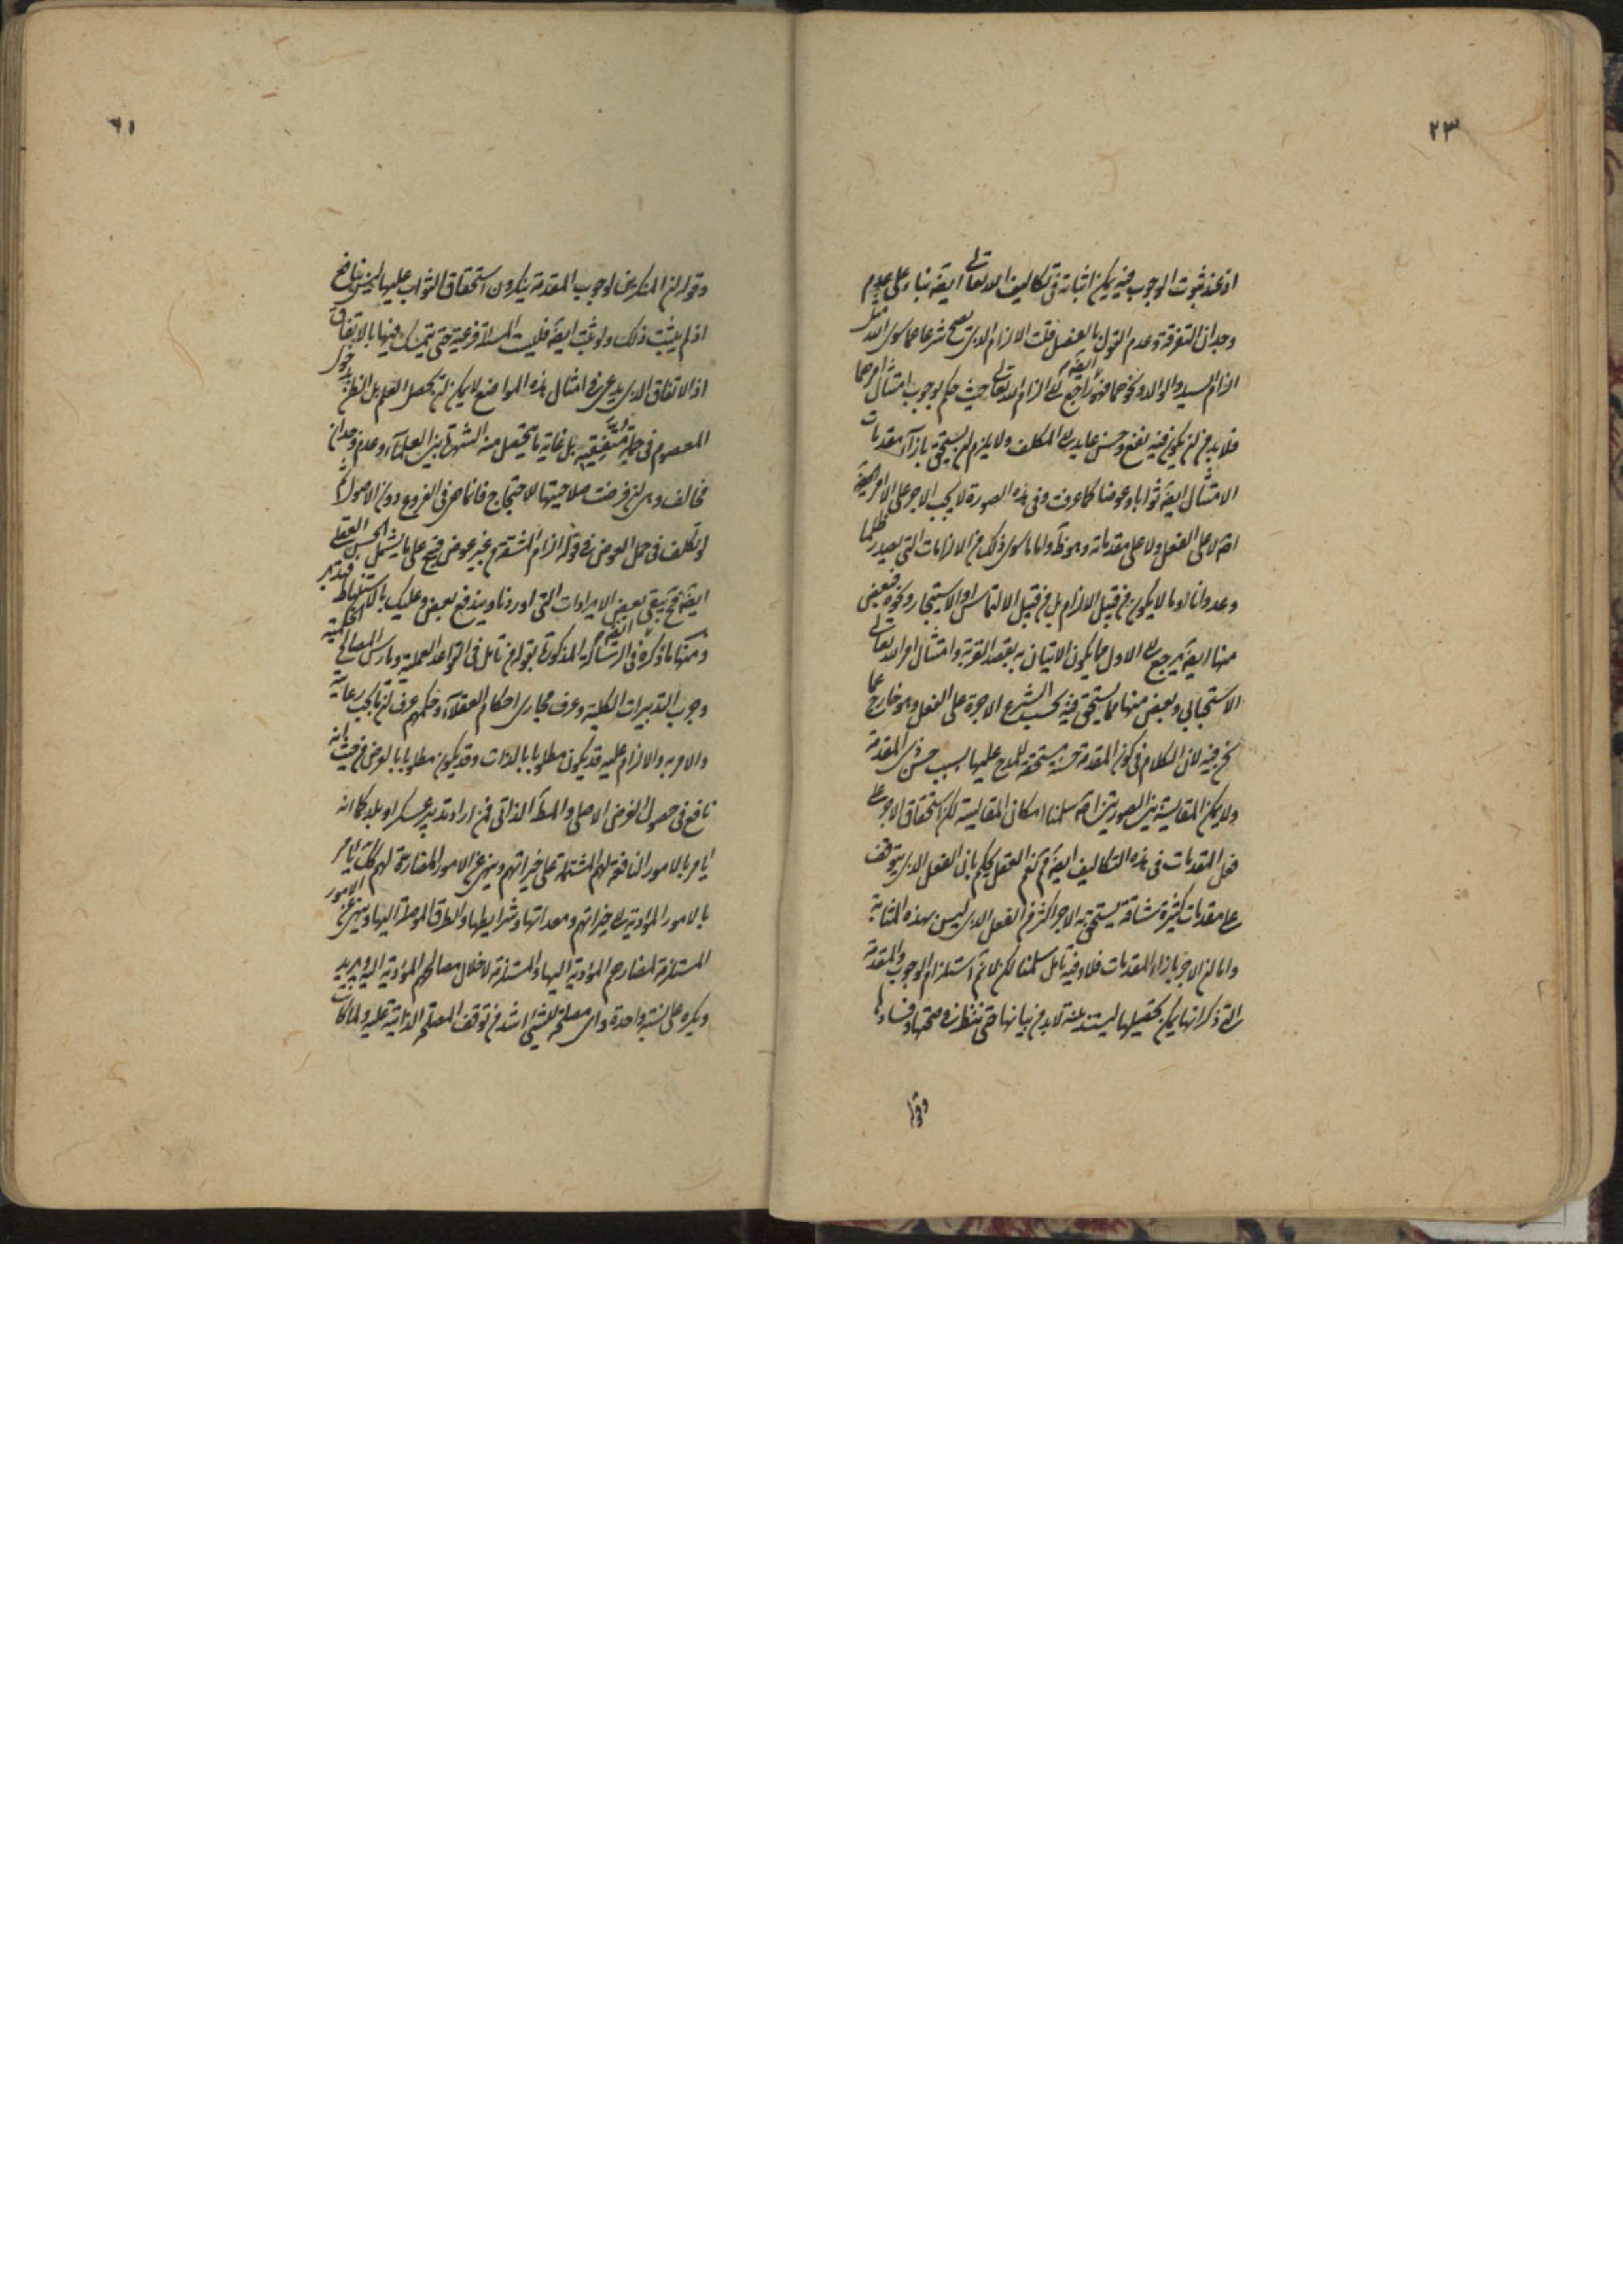 ٢٣
اذ عند ثبوت الوجوب فيه يمكن اثباته فى تكاليف الله تعالى ايضه بناء على عدم
وجدان التفرقة وعدم القول بالفصل قلت الالزام الذى يصح شرعا مما سوى الله مثل
الزام السيد والوالد ونحوهما فهو ايضه راجع الى الزام الله تعالى حيث حكم بوجوب امتثال امرهما
فلا بد من ان يكون فيه نفع وحسن عايد الى المكلف ولا يلزم ان يستحق بازآء مقدمات
الامتثال ايضه ثوابا وعوضا كما عرفت وفى هذه الصورة لا يجب الاجر على الامر ايضه
اصلا على الفعل ولا على مقدماته وهو ظ واما ما سوى ذلك من الالزامات التى يعد ظلما
وعدوانا او ما لا يكون من قبيل الالزام بل من قبيل الالتماس او الاستيجار ونحوه فبعض
منها ايضه يرجع الى الاول مما يكون الاتيان به بقصد القربة وامتثال امر الله تعالى
الاستحبابى وبعض منها مما يستحق فيه بحسب الشرع الاجرة على الفعل وهو خارج عما
نحن فيه لان الكلام فى كون المقدمة حسنة مستحقة للمدح عليها بسبب حسن ذى المقدمة
ولا يمكن المقايسة بين الصورتين اصلا سلمنا امكان المقايسة لكن استحقاق الاجر على
فعل المقدمات فى هذه التكاليف ايضه مم نعم العقل يحكم بان الفعل الذى يتوقف
على مقدمات كثيرة شاقة يستحق به الاجر اكثر من الفعل الذى ليس بهذه المثابة
واما ان الاجر بازاء المقدمات فلا وفيه تامل سلمنا لكن لا نم استلزام الوجوب والمقدمة
التى ذكر انها يمكن تحصيلها ليستند منه لا بد من بيانها حتى ننظر فى صحتها وفسادها
وقوله
٦١
وقوله ان المنكرين لوجوب المقدمة ينكرون استحقاق الثواب عليها ليس بنافع
اذ لم يثبت ذلك ولو ثبت ايضه فليست المسئلة فرعية حتى يتمسك فيها بالاتفاق
اذ الاتفاق الذى يدعى فى امثال هذه المواضع لا يمكن ان يحصل العلم بل الظن بدخول
المعصوم فى جملة متفقيه بل غاية ما يتحصل منه الشهرة بين العلمآء وعدم وجدان
مخالف وهى ان فرضت صلاحيتها للاحتجاج فانما هى فى الفروع دون الاصول ثم
لو تكلف فى حمل العوض فى قوله الزام المشقة من غير عوض قبيح على ما يشمل الحسن العقلى
ايضه فح يبقى بعض الايرادات التى اوردنا ويندفع بعض وعليك بالاستنباط فتدبر
ومنها ما ذكره ايضه فى الرسالة المذكورة بقوله من تامل فى القواعد العملية ومارس المصالح الحكمية
وجرب التدبيرات الكلية وعرف مجارى احكام العقلآء وحكمهم عرف ان ما يجب رعايته
والامر به والالزام عليه قد يكون مطلوبا بالذات وقد يكون مطلوبا بالعرض من حيث انه
نافع فى حصول الغرض الاصلى والمط الذاتى فمن اراد تدبير عسكر او بلد كما انه
يامر بالامور النافعة لهم المشتملة على خيراتهم وينهى عن الامور المضارة لهم كك يامر
بالامور المؤدية الى خيراتهم ومعداتها وشرايطها والطرق الموصلة اليها وينهى عن الامور
المستلزمة لمضارهم المؤدية اليها والمستلزمة لاخلال مصالحهم المؤدية اليه ويريد
ويكره على نسبة واحدة واى مصلحة للشئ اشد من توقف المصلحة الذاتية عليه ولما كانت